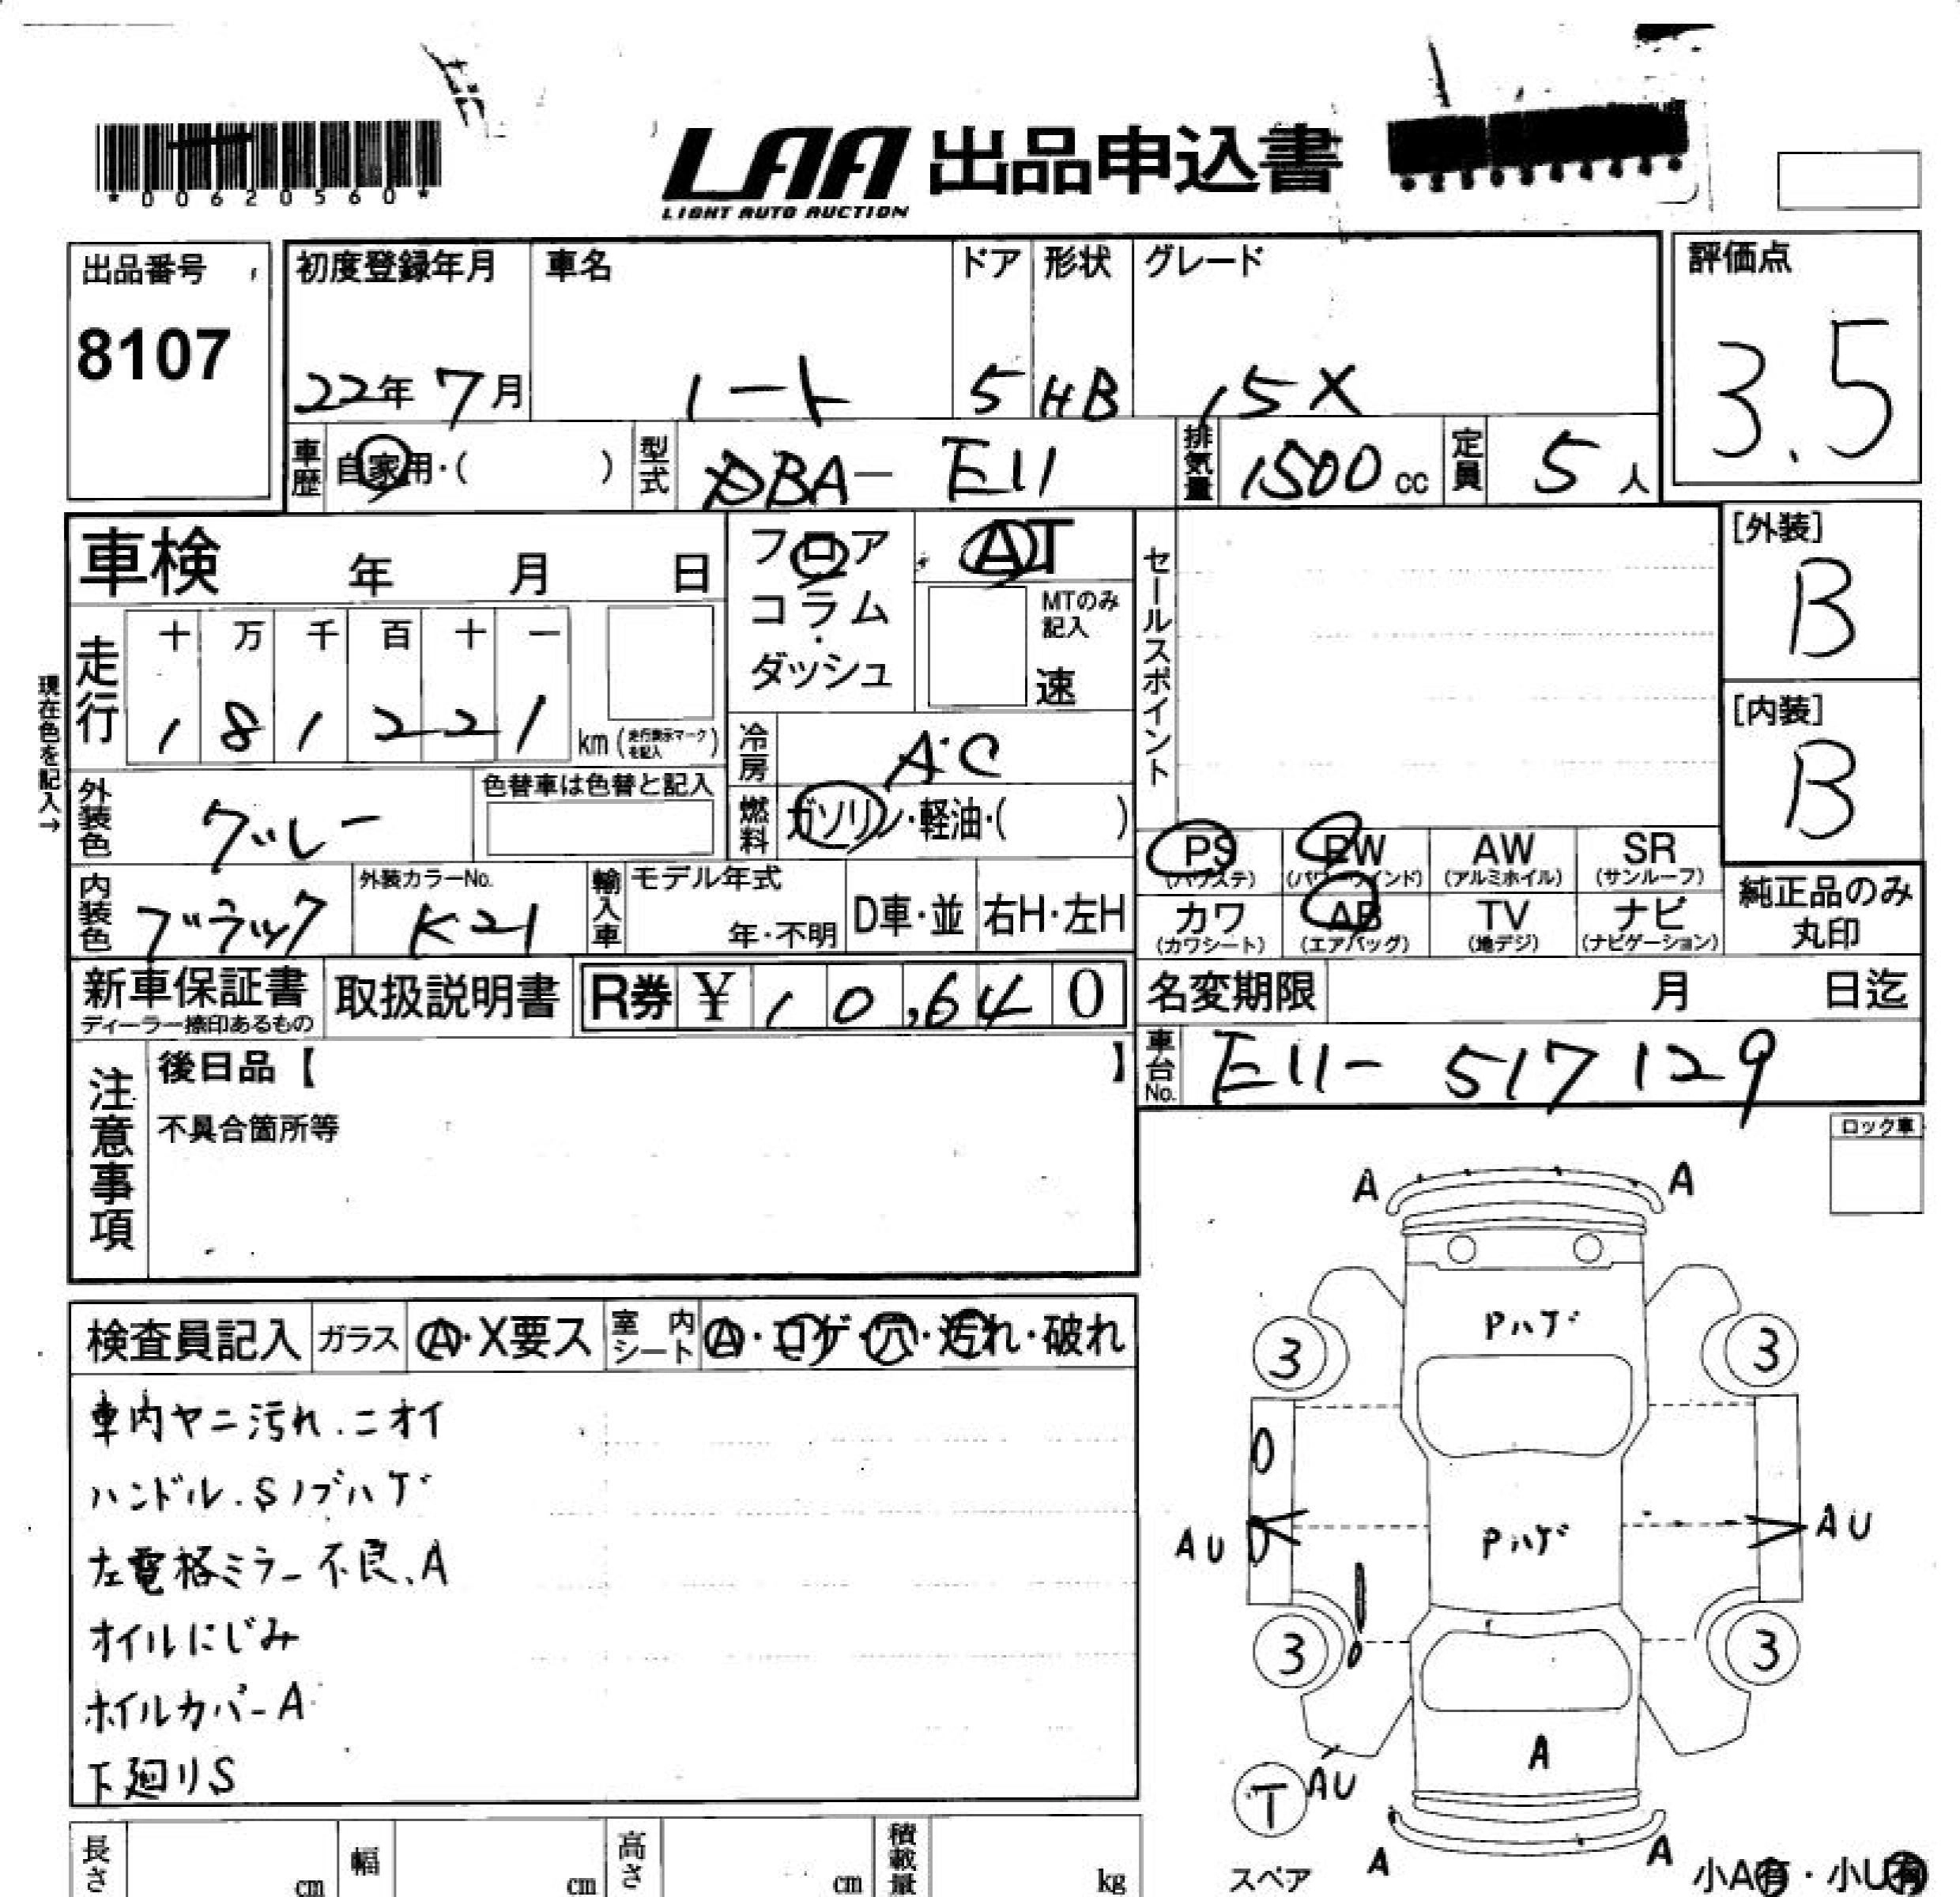 *00620560*
LAA 出品申込書
LIGHT AUTO AUCTION
出品番号
8107
初度登録年月
22年 7月
車名
ノート
ドア
5
形状
HB
グレード
15X
評価点
3.5
車歴
自家用・( )
型式
DBA- E11
排気量
1500 cc
定員
5 人
車検 年 月 日
フロア
コラム
・
ダッシュ
AT
MTのみ
記入
速
セールスポイント
[外装]
B
[内装]
B
現在色を記入→
走行
十 万 千 百 十 一
1 8 1 2 2 1 km (走行表示マークを記入)
冷房
AC
外装色
グレー
色替車は色替と記入
燃料
ガソリン・軽油・( )
内装色
ブラック
外装カラーNo.
K21
輸入車
モデル年式
年・不明
D車・並
右H・左H
PS
(パワステ)
PW
(パワーウインド)
AW
(アルミホイル)
SR
(サンルーフ)
カワ
(カワシート)
AB
(エアバッグ)
TV
(地デジ)
ナビ
(ナビゲーション)
純正品のみ
丸印
新車保証書
ディーラー捺印あるもの
取扱説明書
R券 ¥ 10,640
名変期限 月 日迄
車台No.
E11- 517129
注意事項
後日品【 】
不具合箇所等
ロック車
検査員記入
ガラス
A・X要ス
室内シート
A・コゲ・穴・汚れ・破れ
車内ヤニ汚れ.ニオイ
ハンドル.Sノブハゲ
左電格ミラー不良、A
オイルにじみ
ホイルカバーA
下廻りS
A A
Pハゲ
3 3
AU Pハゲ AU
3 3
A
T AU
A A
スペア
小A有・小U有
長さ cm
幅 cm
高さ cm
積載量 kg